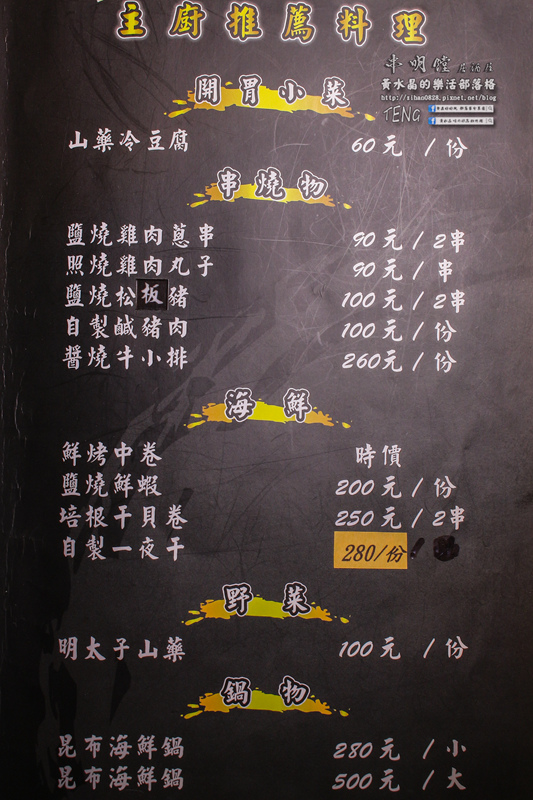 主廚推薦料理
串明鏜 居酒屋
黃水晶的樂活部落格
http://sihan0828.pixnet.net/blog
TENG
開胃小菜
山藥冷豆腐 60元 / 份
串燒物
鹽燒雞肉蔥串 90元 / 2串
照燒雞肉丸子 90元 / 串
鹽燒松板豬 100元 / 2串
自製鹹豬肉 100元 / 份
醬燒牛小排 260元 / 份
海鮮
鮮烤中卷 時價
鹽燒鮮蝦 200元 / 份
培根干貝卷 250元 / 2串
自製一夜干 280/份
野菜
明太子山藥 100元 / 份
鍋物
昆布海鮮鍋 280元 / 小
昆布海鮮鍋 500元 / 大